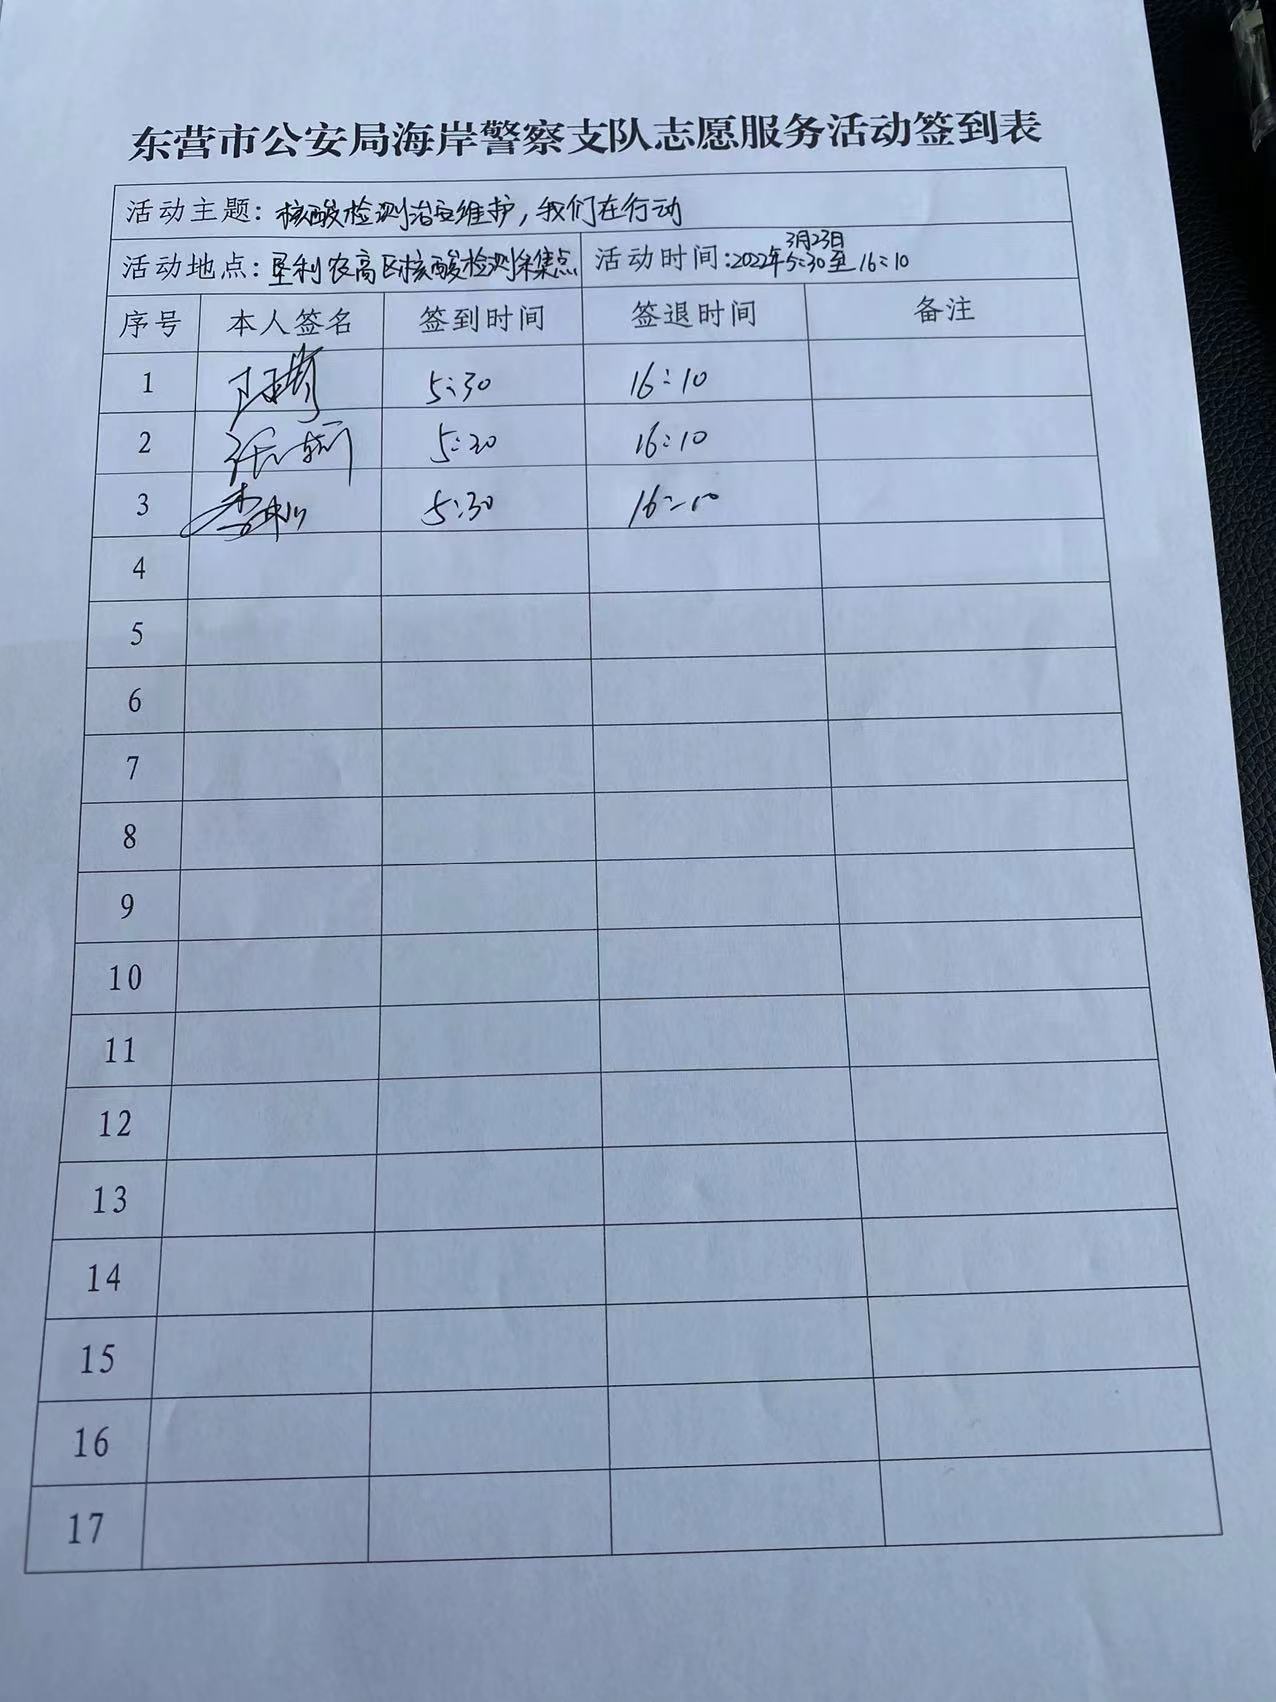 东营市公安局海岸警察支队志愿服务活动签到表
活动主题：核酸检测治安维护，我们在行动
活动地点：垦利农高区核酸检测采集点 活动时间：2022年3月23日5:30至16:10
序号 本人签名 签到时间 签退时间 备注
1 5:30 16:10
2 5:30 16:10
3 5:30 16:10
4
5
6
7
8
9
10
11
12
13
14
15
16
17